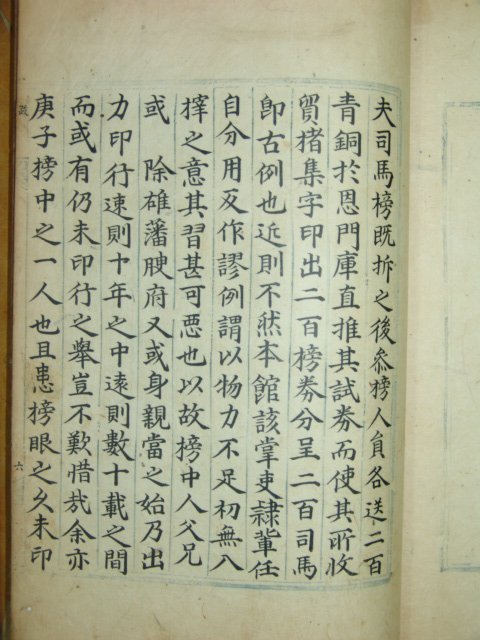 夫司馬榜既拆之後叅榜人員各送二百
青銅於恩門庫直推其試券而使其所收
貿楮集字印出二百榜券分呈二百司馬
卽古例也近則不然本館該掌吏隷輩任
自分用反作謬例謂以物力不足初無入
擇之意其習甚可惡也以故榜中人父兄
或 除雄藩腴府又或身親當之始乃出
力印行速則十年之中遠則數十載之間
而或有仍未印行之舉豈不歎惜哉余亦
庚子榜中之一人也且患榜眼之久未印
六